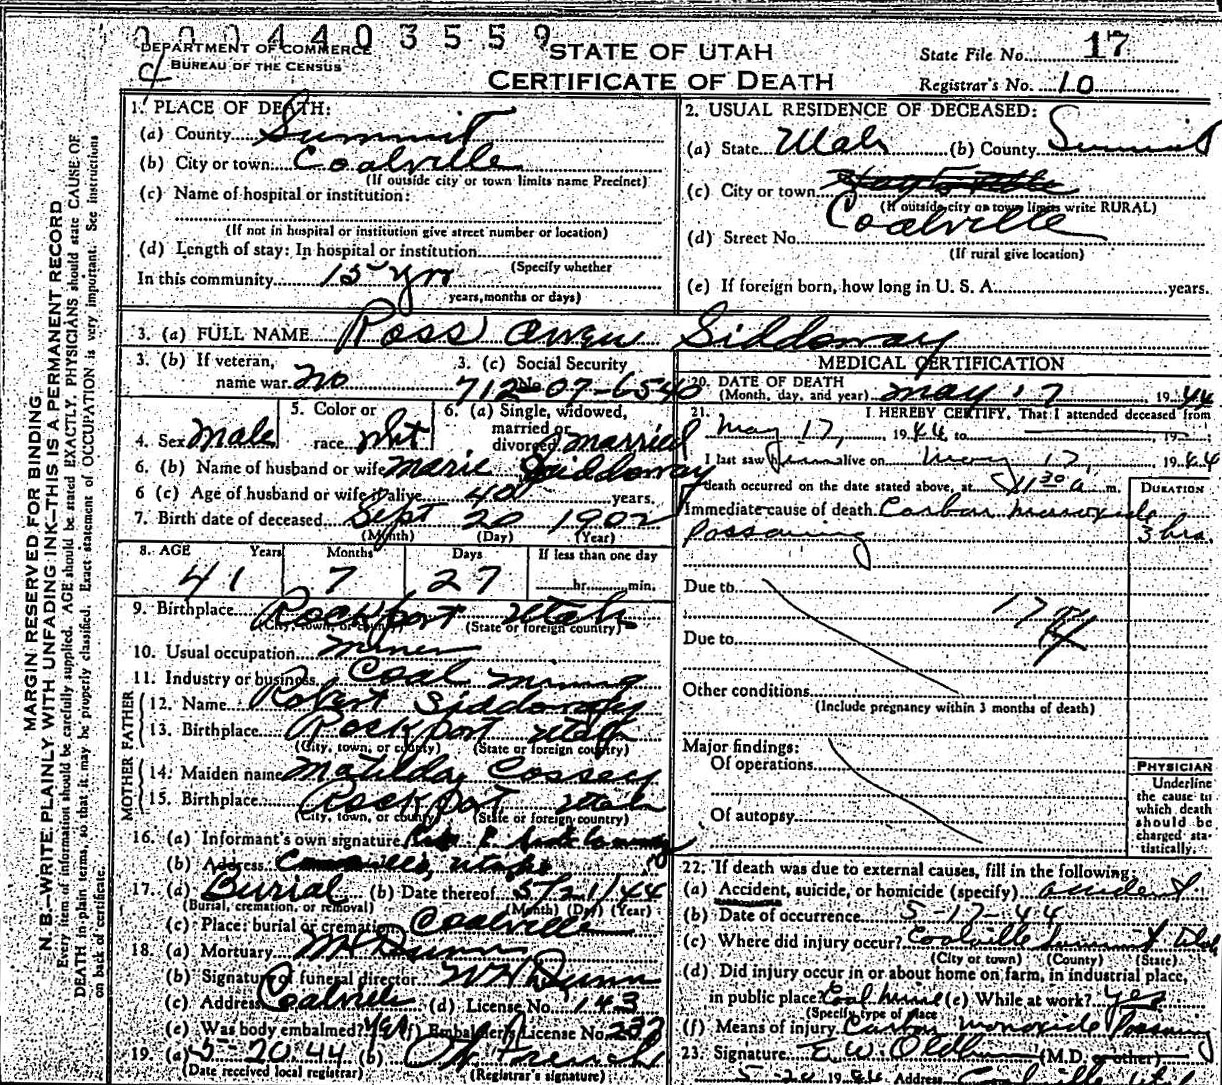 0 0 0 4 4 0 3 5 5 9
DEPARTMENT OF COMMERCE
BUREAU OF THE CENSUS
STATE OF UTAH
CERTIFICATE OF DEATH
State File No. 17
Registrar's No. 10
MARGIN RESERVED FOR BINDING
N. B.—WRITE PLAINLY WITH UNFADING INK—THIS IS A PERMANENT RECORD
Every item of information should be carefully supplied. AGE should be stated EXACTLY. PHYSICIANS should state CAUSE OF
DEATH in plain terms, so that it may be properly classified. Exact statement of OCCUPATION is very important. See instructions
on back of certificate.
1. PLACE OF DEATH:
(a) County Summit
(b) City or town Coalville
(If outside city or town limits name Precinct)
(c) Name of hospital or institution:
(If not in hospital or institution give street number or location)
(d) Length of stay: In hospital or institution
(Specify whether
In this community 15 yrs
years, months or days)
2. USUAL RESIDENCE OF DECEASED:
(a) State Utah (b) County Summit
(c) City or town
(If outside city or town limits write RURAL)
Coalville
(d) Street No.
(If rural give location)
(e) If foreign born, how long in U. S. A. years.
3. (a) FULL NAME Ross Owen Siddoway
3. (b) If veteran,
name war no
3. (c) Social Security
No. 712-07-6540
4. Sex Male
5. Color or
race whit
6. (a) Single, widowed,
married or
divorced married
6. (b) Name of husband or wife Marie Siddoway
6 (c) Age of husband or wife if alive 40 years.
7. Birth date of deceased Sept 20 1902
(Month) (Day) (Year)
8. AGE Years Months Days If less than one day
41 7 27 hr. min.
9. Birthplace Rockport Utah
(City, town, or county) (State or foreign country)
10. Usual occupation Miner
11. Industry or business Coal Mining
FATHER
12. Name Robert Siddoway
13. Birthplace Rockport Utah
(City, town, or county) (State or foreign country)
MOTHER
14. Maiden name Matilda Cossey
15. Birthplace Rockport Utah
(City, town, or county) (State or foreign country)
16. (a) Informant's own signature
(b) Address
17. (a) Burial (b) Date thereof 5/21/44
(Burial, cremation, or removal) (Month) (Day) (Year)
(c) Place: burial or cremation Coalville
18. (a) Mortuary Dunn
(b) Signature of funeral director W H Dunn
(c) Address Coalville (d) License No. 143
(e) Was body embalmed? Yes (f) Embalmer's License No. 232
19. (a) 5-20 44 (b) French
(Date received local registrar) (Registrar's signature)
MEDICAL CERTIFICATION
20. DATE OF DEATH
(Month, day, and year) May 17 1944
21. I HEREBY CERTIFY, That I attended deceased from
May 17, 1944, to 19
I last saw him alive on May 17, 1944
death occurred on the date stated above, at 11 30 a m.
DURATION
Immediate cause of death Carbon monoxide
Possoning 3 hrs.
Due to
Due to
Other conditions
(Include pregnancy within 3 months of death)
Major findings:
Of operations
Of autopsy
PHYSICIAN
Underline
the cause to
which death
should be
charged sta-
tistically.
22. If death was due to external causes, fill in the following:
(a) Accident, suicide, or homicide (specify) accident
(b) Date of occurrence 5-17-44
(c) Where did injury occur? Coalville Summit Utah
(City or town) (County) (State)
(d) Did injury occur in or about home on farm, in industrial place,
in public place? Coal mine (e) While at work? yes
(Specify type of place
(f) Means of injury Carbon monoxide Possoning
23. Signature E. W. Oldham (M.D. or other)
5-20 1944 Address Coalville Utah